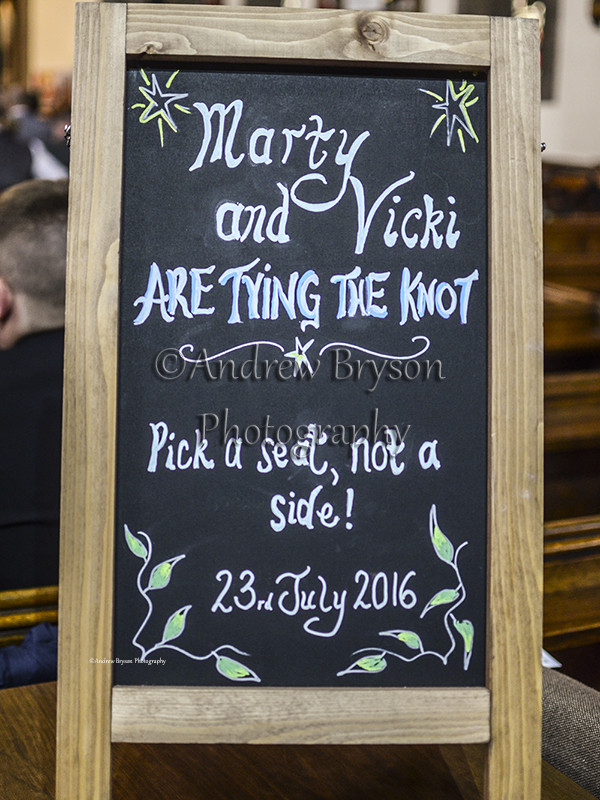 Marty
and Vicki
ARE TYING THE KNOT
©Andrew Bryson
Photography
Pick a seat, not a
side!
23rd July 2016
©Andrew Bryson Photography